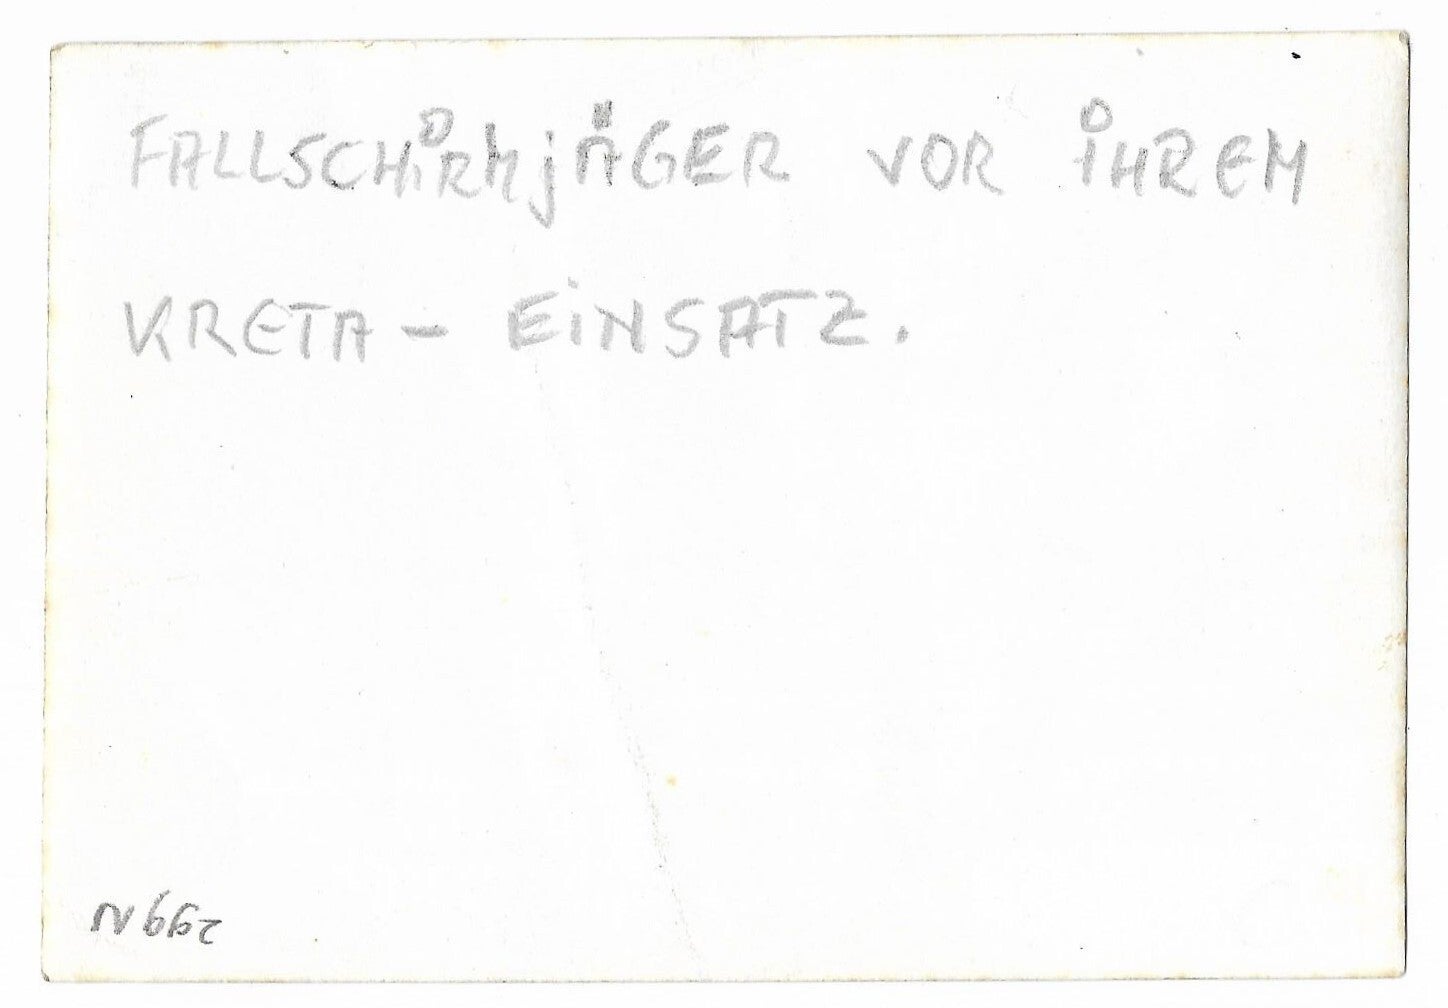 FALLSCHiRMjÄGER VOR iHREM
KRETA - EiNSATZ.